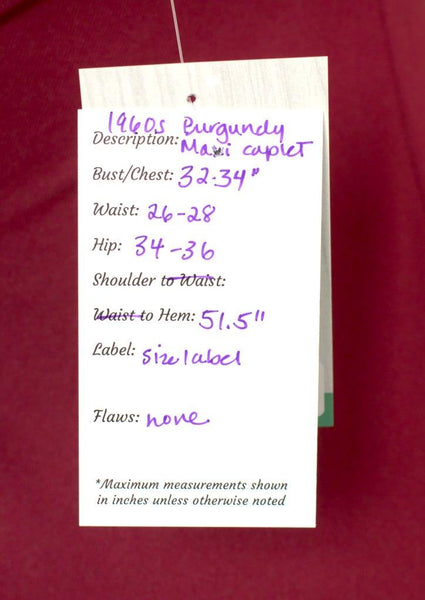 1960s Burgundy
Description: Maxi caplet
Bust/Chest: 32-34"
Waist: 26-28
Hip: 34-36
Shoulder to Waist:
Waist to Hem: 51.5"
Label: size label
Flaws: none
*Maximum measurements shown
in inches unless otherwise noted